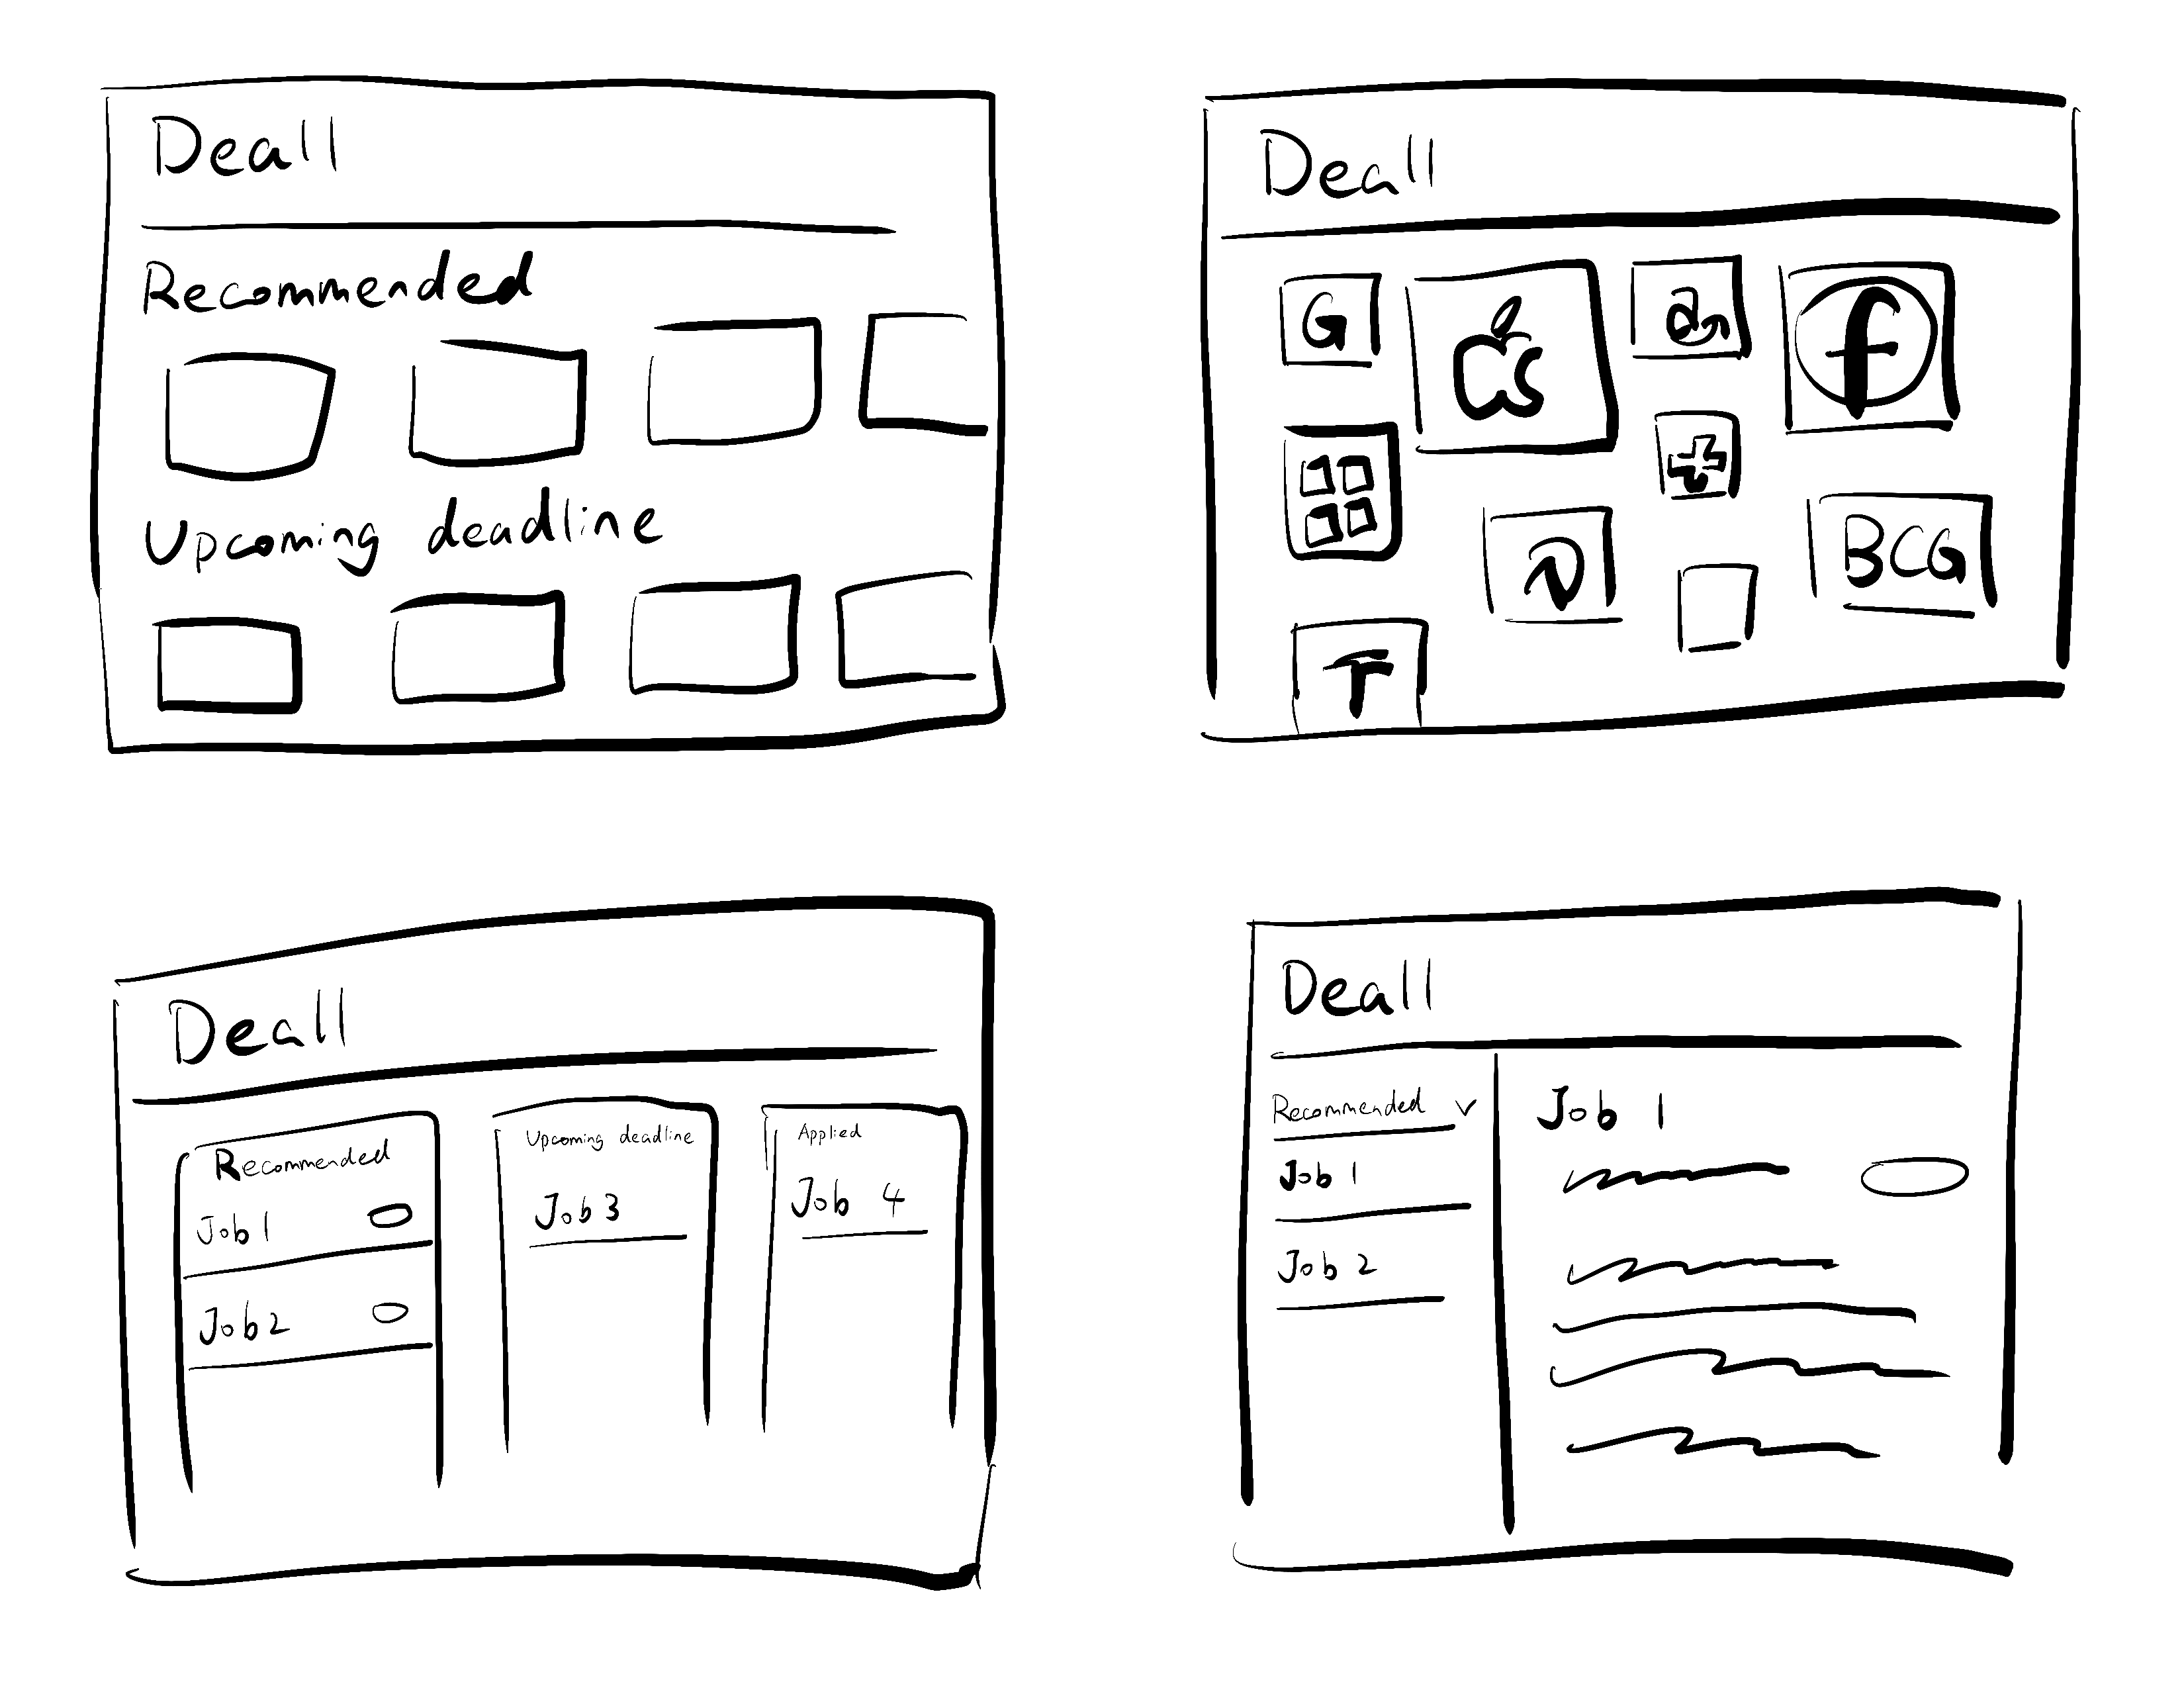 Deall
Recommended
Upcoming deadline
Deall
G
a
f
BCG
T
Deall
Recommended
Job 1
Job 2
Upcoming deadline
Job 3
Applied
Job 4
Deall
Recommended
Job 1
Job 2
Job 1